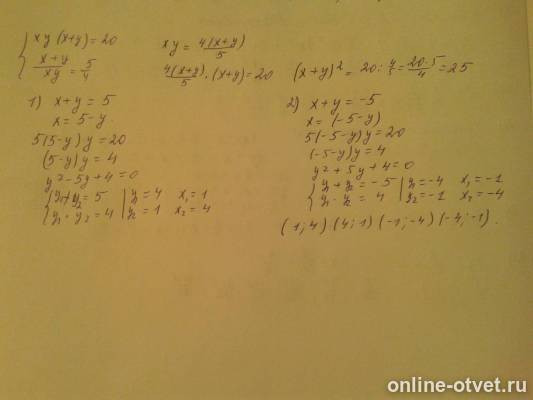 { xy(x+y)=20
x+y/xy = 5/4
xy = 4(x+y)/5
4(x+y)/5 · (x+y)=20
(x+y)² = 20 : 4/5 = 20·5/4 = 25
1) x+y = 5
x = 5-y
5(5-y)y = 20
(5-y)y = 4
y²-5y+4=0
{ y₁+y₂ = 5 | y₁ = 4 x₁ = 1
y₁·y₂ = 4 | y₂ = 1 x₂ = 4
2) x+y = -5
x = (-5-y)
5(-5-y)y=20
(-5-y)y = 4
y²+5y+4=0
{ y₁+y₂ = -5 | y₁=-4 x₁=-1
y₁·y₂ = 4 | y₂=-1 x₂=-4
(1;4) (4;1) (-1;-4) (-4;-1).
online-otvet.ru